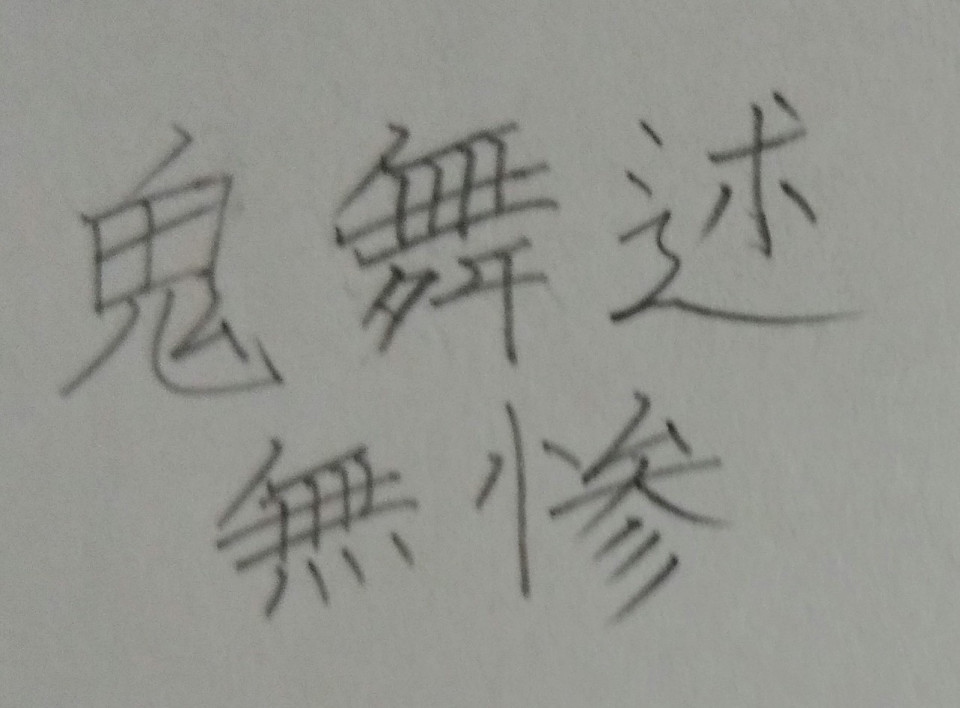 鬼舞述
無惨